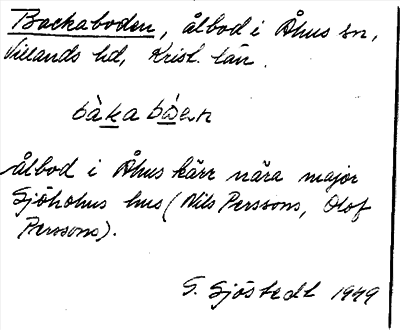 Backaboden, ålbod i Åhus sn,
Villands hd, Krist. län.
bàkabòen
ålbod i Åhus kärr nära major
Sjöholms hus (Nils Perssons, Olof
Perssons).
G. Sjöstedt 1949